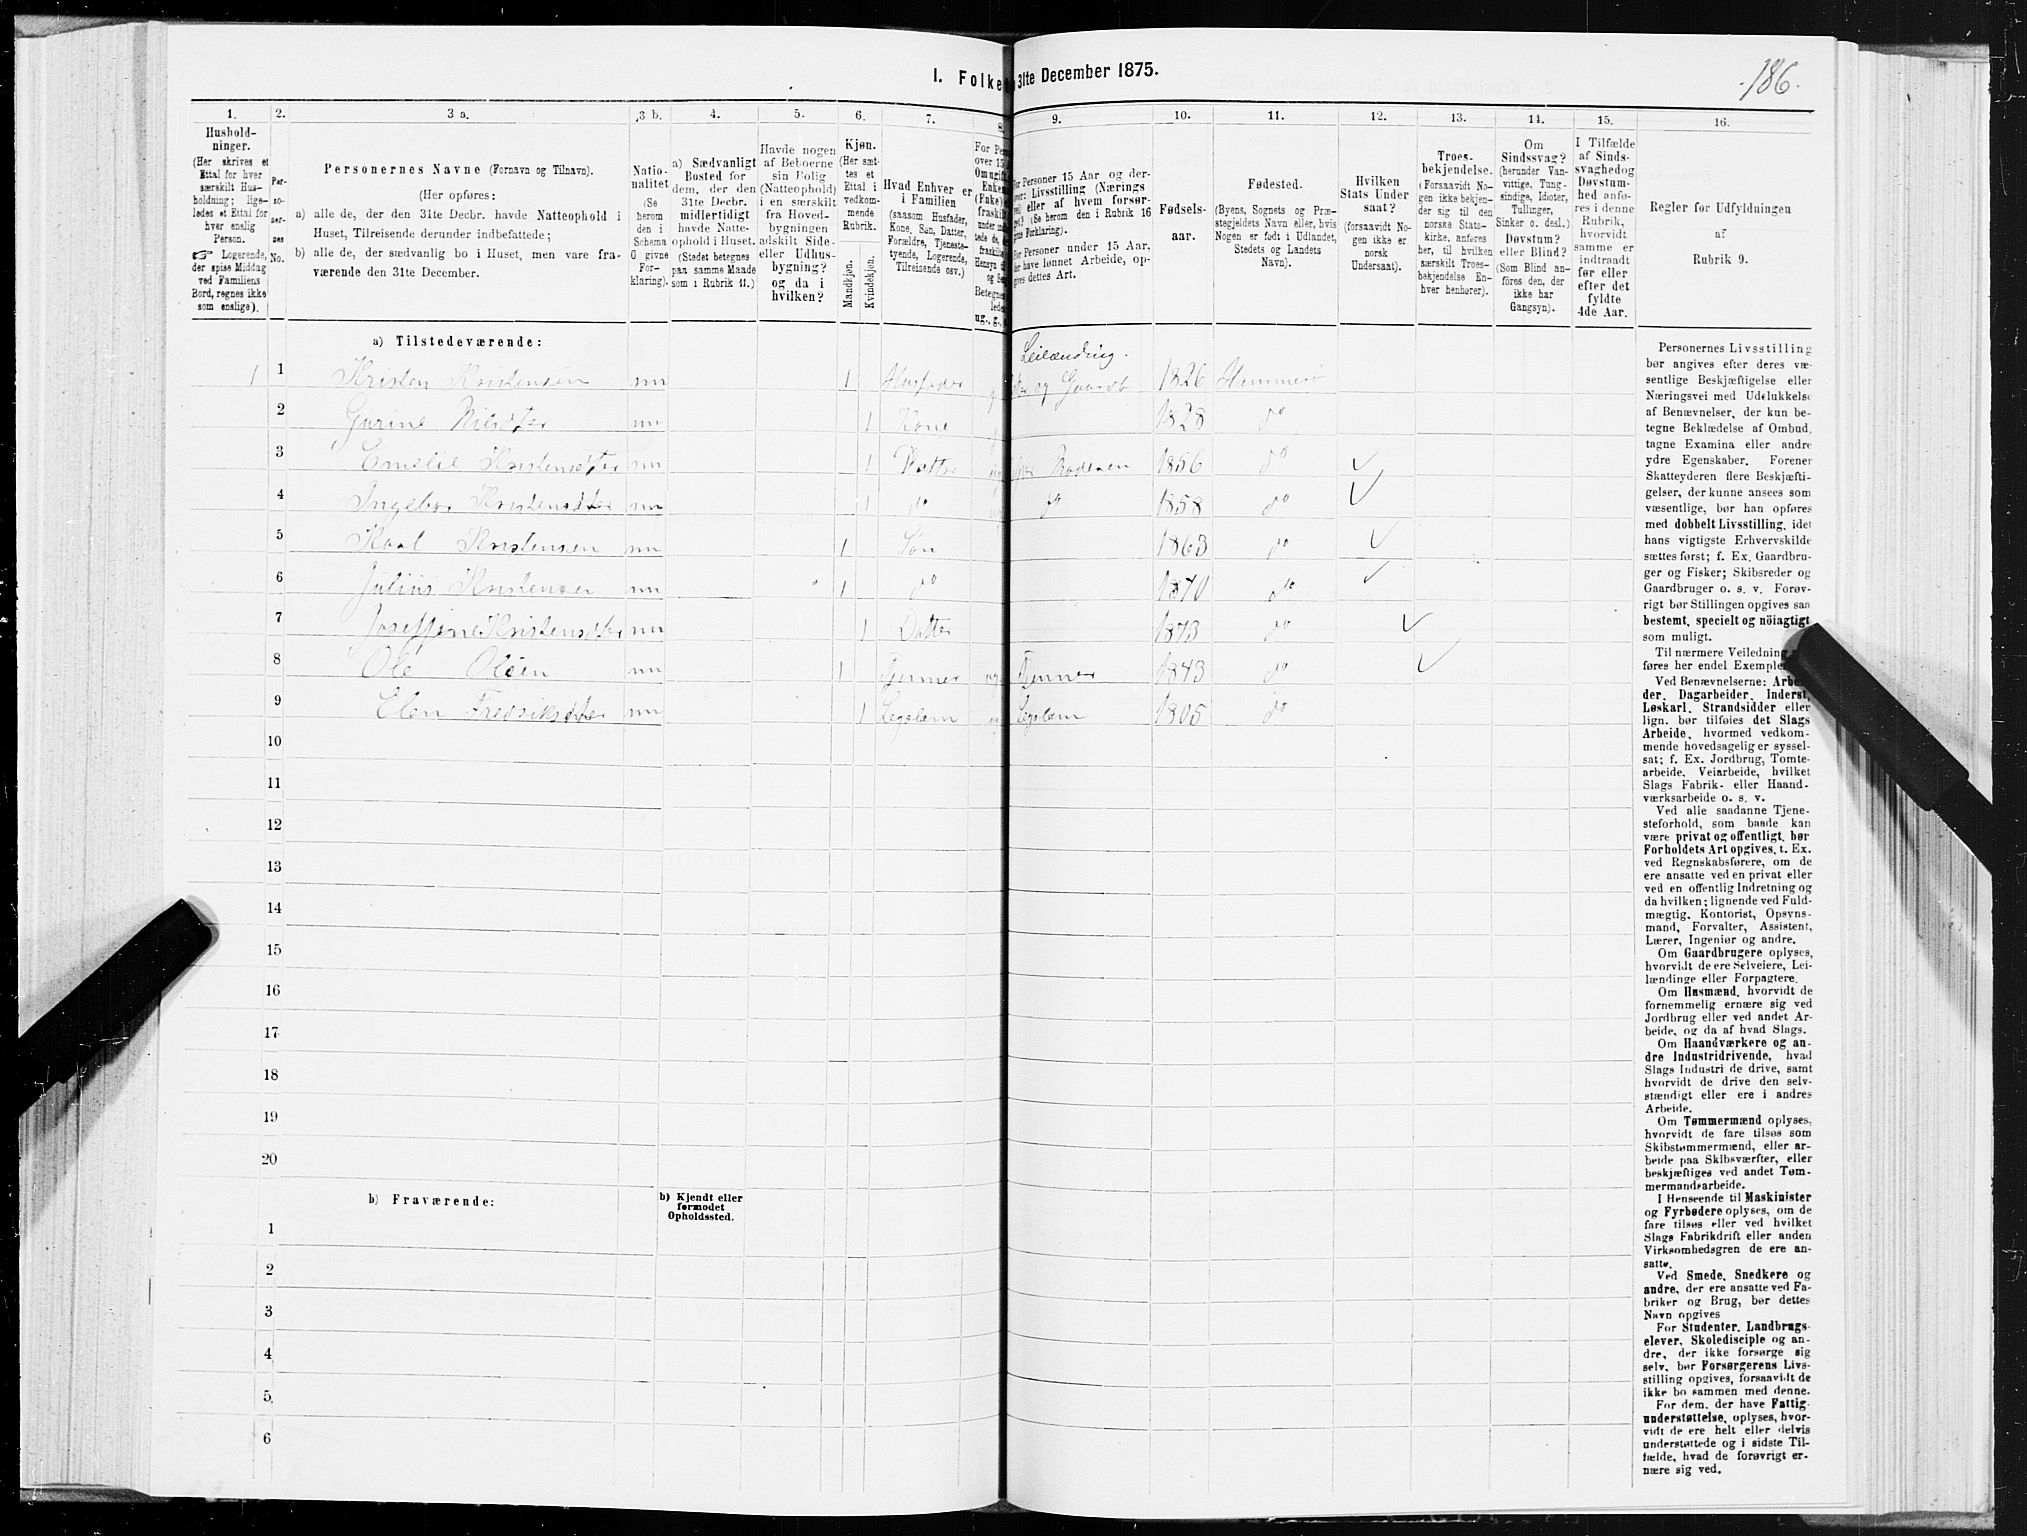 I. Folke
31te December 1875.
186.
1. 2. 3 a. 3 b. 4. 5. 6. 7. 8. 9. 10. 11. 12. 13. 14. 15. 16.
Hushold-
ninger.
(Her skrives et
Ettal for hver
særskilt Hus-
holdning; lige-
ledes et Ettal for
hver enslig
Person.
☞ Logerende,
der spise Middag
ved Familiens
Bord, regnes ikke
som enslige).
Per-
so-
ner-
nes
No.
Personernes Navne (Fornavn og Tilnavn).
(Her opføres:
a) alle de, der den 31te Decbr. havde Natteophold i
Huset, Tilreisende derunder indbefattede;
b) alle de, der sædvanlig bo i Huset, men vare fra-
værende den 31te December.
Natio-
nalitet
(Se
herom
den i
Schema
O givne
For-
klaring).
a) Sædvanligt
Bosted for
dem, der den
31te Decbr.
midlertidigt
havde Natte-
ophold i Huset.
(Stedet betegnes
paa samme Maade
som i Rubrik 11.)
Havde nogen
af Beboerne
sin Bolig
(Natteophold)
i en særskilt
fra Hoved-
bygningen
adskilt Side-
eller Udhus-
bygning?
og da i
hvilken?
Kjøn.
(Her sæt-
tes et
Ettal i
vedkom-
mende
Rubrik.
Mandkjøn.
Kvindekjøn.
Hvad Enhver er
i Familien
(saasom Husfader,
Kone, Søn, Datter,
Forældre, Tjeneste-
tyende, Logerende,
Tilreisende osv.)
For Per
over 15
Om ugift,
Enkem
(Enke) e
fraskil
under ind
tede de, d
fraskilte
Hensyn t
og Se
Betegnes
lede
ug., g.,
For Personer 15 Aar og der-
over: Livsstilling (Nærings
vei) eller af hvem forsør-
get? (Se herom den i Rubrik 16
givne Forklaring).
For Personer under 15 Aar,
der have lønnet Arbeide, op-
gives dettes Art.
Fødsels-
aar.
Fødested.
(Byens, Sognets og Præ-
stegjeldets Navn eller, hvis
Nogen er født i Udlandet,
Stedets og Landets
Navn).
Hvilken
Stats Under
saat?
(forsaavidt No-
gen ikke er
norsk
Undersaat).
Troes-
bekjendelse.
(Forsaavidt No-
gen ikke bekjen-
der sig til den
norske Stats-
kirke, anføres
her, til hvilken
særskilt Troes-
bekjendelse En-
hver henhører).
Om
Sindssvag?
(herunder Van-
vittige, Tung-
sindige, Idioter,
Tullinger,
Sinker o. desl.)
Døvstum?
eller Blind?
(Som Blind an-
føres den, der
ikke har
Gangsyn).
I Tilfælde
af Sinds-
svaghedog
Døvstum-
hed anfø-
res i denne
Rubrik,
hvorvidt
samme er
indtraadt
før eller
efter det
fyldte
4de Aar.
Regler for Udfyldningen
af
Rubrik 9.
a) Tilstedeværende:
Leilænding.
1 1 Kristen Kristensen nn 1 Husfader og Gaardb 1826 Hammerø
2 Gurine Nilsdtter nn 1 Kone 1828 do
3 Emelie Kristensdtter nn 1 Datter 1856 do
4 Ingebor Kristensdtter nn 1 do do 1858 do
5 Karl Kristensen nn 1 Søn 1863 do
6 Julius Kristensen nn 1 do 1870 do
7 Joseffine Kristensdtter nn 1 Datter 1873 do
8 Ole Olsen nn 1 Tjenner Tjenner 1843 do
9 Elen Fredriksdtter nn 1 Legslem Legslem 1805 do
10
11
12
13
14
15
16
17
18
19
20
b) Fraværende:
b) Kjendt eller
formodet
Opholdssted.
1
2
3
4
5
6
Personernes Livsstilling
bør angives efter deres væ-
sentlige Beskjæftigelse eller
Næringsvei med Udelukkelse
af Benævnelser, der kun be-
tegne Beklædelse af Ombud,
tagne Examina eller andre
ydre Egenskaber. Forener
Skatteyderen flere Beskjæfti-
gelser, der kunne ansees som
væsentlige, bør han opføres
med dobbelt Livsstilling, idet
hans vigtigste Erhvervskilde
sættes først; f. Ex. Gaardbru-
ger og Fisker; Skibsreder og
Gaardbruger o. s. v. Forøv-
rigt bør Stillingen opgives saa
bestemt, specielt og nöiagtigt
som muligt.
Til nærmere Veiledning
føres her endel Exempler:
Ved Benævnelserne: Arbei-
der, Dagarbeider, Inderst,
Løskarl, Strandsidder eller
lign. bør tilføies det Slags
Arbeide, hvormed vedkom-
mende hovedsagelig er syssel-
sat; f. Ex. Jordbrug, Tomte-
arbeide, Veiarbeide, hvilket
Slags Fabrik- eller Haand-
værksarbeide o. s. v.
Ved alle saadanne Tjene-
steforhold, som baade kan
være privat og offentligt, bør
Forholdets Art opgives, t. Ex.
ved Regnskabsførere, om de
ere ansatte ved en privat eller
ved en offentlig Indretning og
da hvilken; lignende ved Fuld-
mægtig, Kontorist, Opsyns-
mand, Forvalter, Assistent,
Lærer, Ingeniør og andre.
Om Gaardbrugere oplyses,
hvorvidt de ere Selveiere, Lei-
lændinge eller Forpagtere.
Om Husmænd, hvorvidt de
fornemmelig ernære sig ved
Jordbrug eller ved andet Ar-
beide, og da af hvad Slags.
Om Haandværkere og an-
dre Industridrivende, hvad
Slags Industri de drive, samt
hvorvidt de drive den selv-
stændigt eller ere i andres
Arbeide.
Om Tømmermænd oplyses,
hvorvidt de fare tilsøs som
Skibstømmermænd, eller ar-
beide paa Skibsværfter, eller
beskjæftiges ved andet Tøm-
mermandsarbeide.
I Henseende til Maskinister
og Fyrbødere oplyses, om de
fare tilsøs eller ved hvilket
Slags Fabrikdrift eller anden
Virksomhedsgren de ere an-
satte.
Ved Smede, Snedkere og
andre, der ere ansatte ved Fa-
briker og Brug, bør dettes
Navn opgives
For Studenter, Landbrugs-
elever, Skoledisciple og an-
dre, der ikke forsørge sig
selv, bør Forsørgerens Livs-
stilling opgives, forsaavidt de
ikke bo sammen med denne.
For dem, der have Fattig-
understøttelse, oplyses, hvor-
vidt de ere helt eller delvis
understøttede og i sidste Til-
fælde, hvad de forøvrigt er-
nære sig ved.